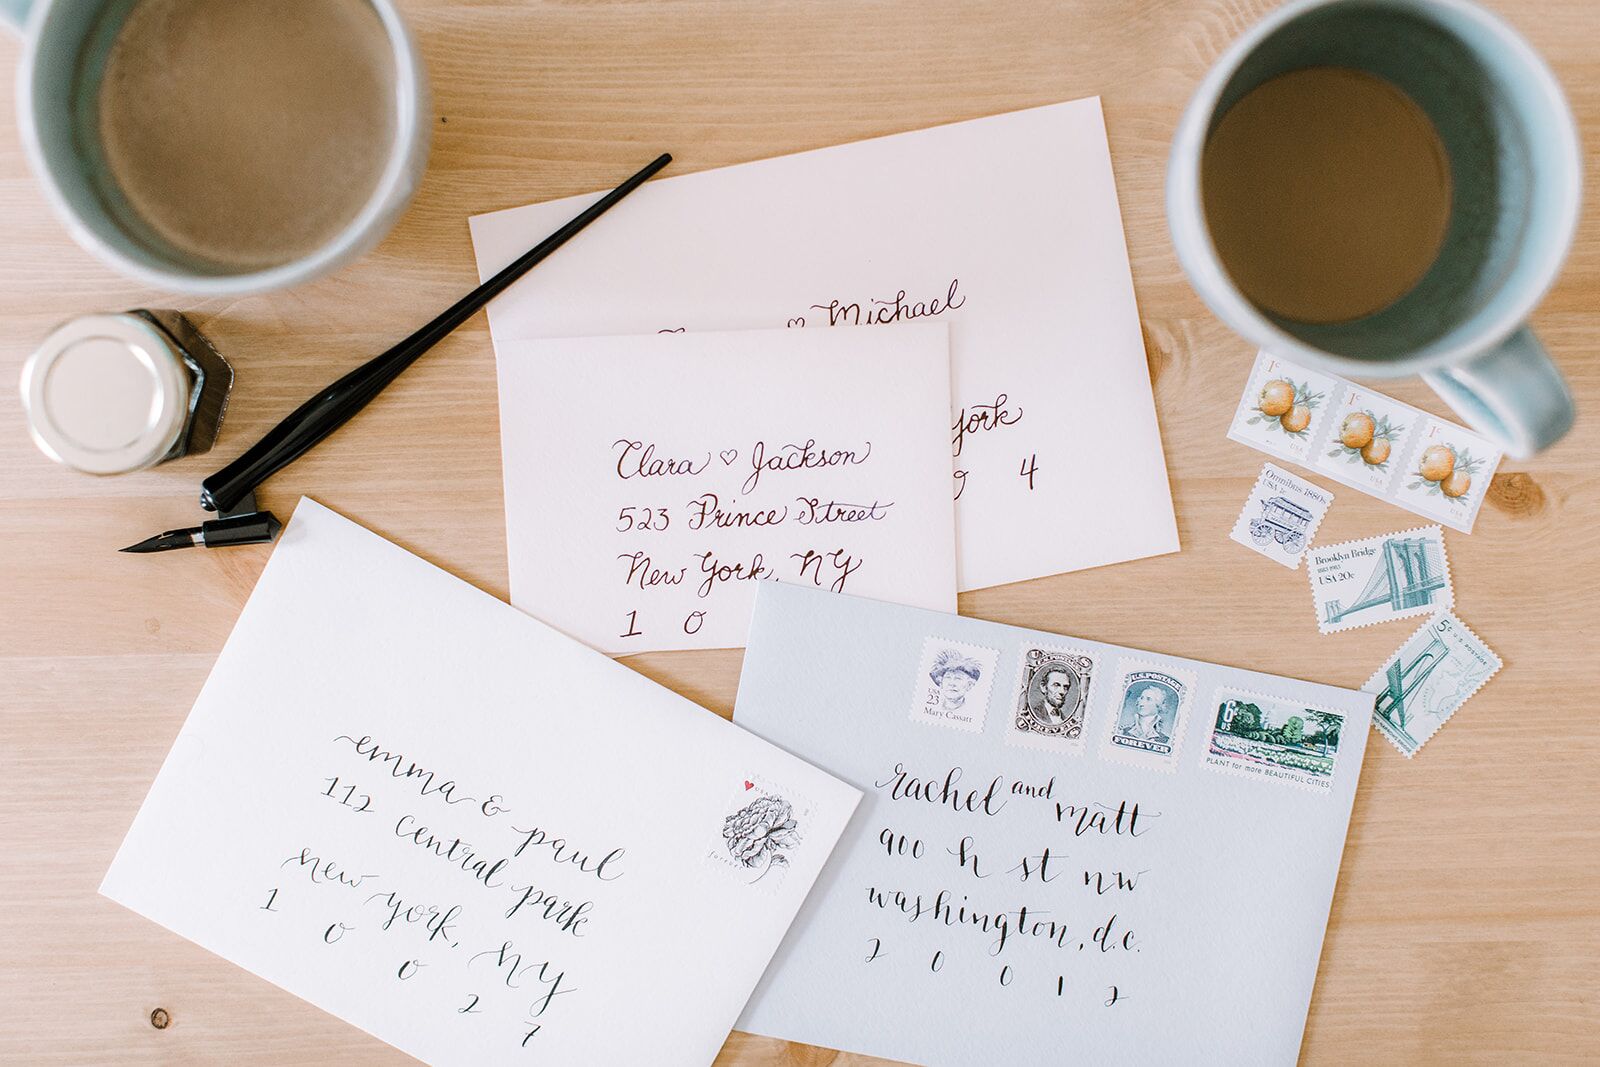 Michael
York
4
Clara ♡ Jackson
523 Prince Street
New York, NY
1 0
emma & paul
112 central park
new york, ny
1 0 0 2 7
USA
forever
USA
23
Mary Cassatt
U.S. POSTAGE
FOREVER
6¢
US
PLANT for more BEAUTIFUL CITIES
rachel and matt
900 h st nw
washington, d.c.
2 0 0 1 2
1¢
USA
1¢
USA
1¢
USA
Omnibus 1880s
USA 1c
Brooklyn Bridge
1883-1983
USA 20c
5¢ U.S. POSTAGE